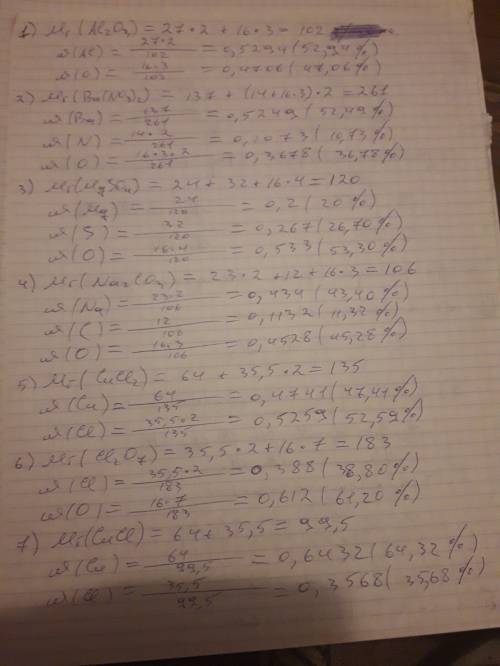 1) Mr(Al2O3) = 27•2 + 16•3 = 102
w(Al) = 27•2/102 = 0,5294 (52,94%)
w(O) = 16•3/102 = 0,4706 (47,06%)
2) Mr(Ba(NO3)2) = 137 + (14+16•3)•2 = 261
w(Ba) = 137/261 = 0,5249 (52,49%)
w(N) = 14•2/261 = 0,1073 (10,73%)
w(O) = 16•3•2/261 = 0,3678 (36,78%)
3) Mr(MgSO4) = 24 + 32 + 16•4 = 120
w(Mg) = 24/120 = 0,2 (20%)
w(S) = 32/120 = 0,267 (26,70%)
w(O) = 16•4/120 = 0,533 (53,30%)
4) Mr(Na2CO3) = 23•2 + 12 + 16•3 = 106
w(Na) = 23•2/106 = 0,434 (43,40%)
w(C) = 12/106 = 0,1132 (11,32%)
w(O) = 16•3/106 = 0,4528 (45,28%)
5) Mr(CuCl2) = 64 + 35,5•2 = 135
w(Cu) = 64/135 = 0,4741 (47,41%)
w(Cl) = 35,5•2/135 = 0,5259 (52,59%)
6) Mr(Cl2O7) = 35,5•2 + 16•7 = 183
w(Cl) = 35,5•2/183 = 0,388 (38,80%)
w(O) = 16•7/183 = 0,612 (61,20%)
7) Mr(CuCl) = 64 + 35,5 = 99,5
w(Cu) = 64/99,5 = 0,6432 (64,32%)
w(Cl) = 35,5/99,5 = 0,3568 (35,68%)